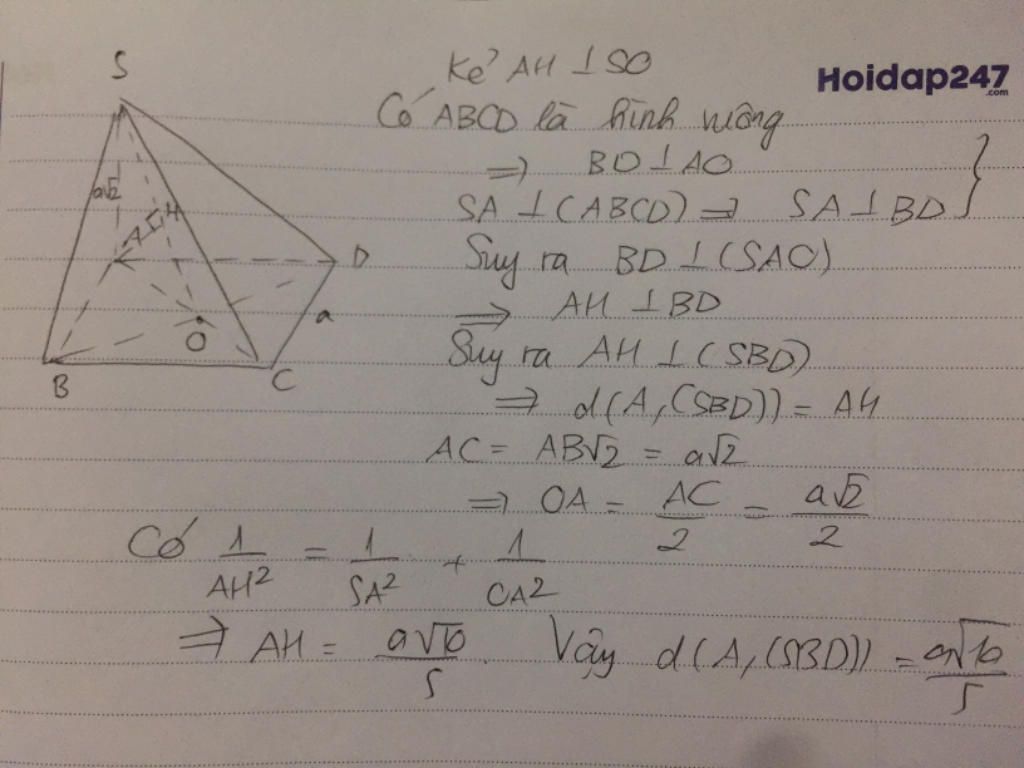 S
a√2
A
H
D
a
O
B
C
Kẻ AH ⊥ SO
Hoidap247
.com
Có ABCD là hình vuông
⇒ BD ⊥ AO
SA ⊥ (ABCD) ⇒ SA ⊥ BD }
Suy ra BD ⊥ (SAO)
⇒ AH ⊥ BD
Suy ra AH ⊥ (SBD)
⇒ d(A, (SBD)) = AH
AC = AB√2 = a√2
⇒ OA = AC/2 = a√2/2
Có 1/AH² = 1/SA² + 1/OA²
⇒ AH = a√10/5. Vậy d(A, (SBD)) = a√10/5